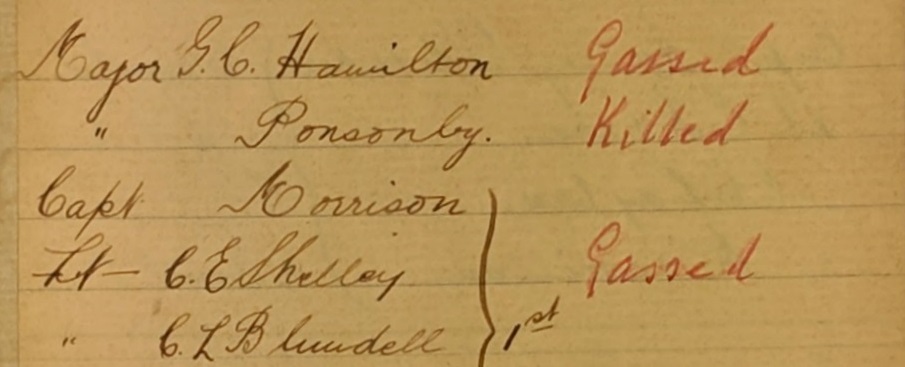 Major G. C. Hamilton Gassed
" Ponsonby. Killed
Capt Morrison
Lt - C. E Shelley Gassed
" C. L Blundell } 1st